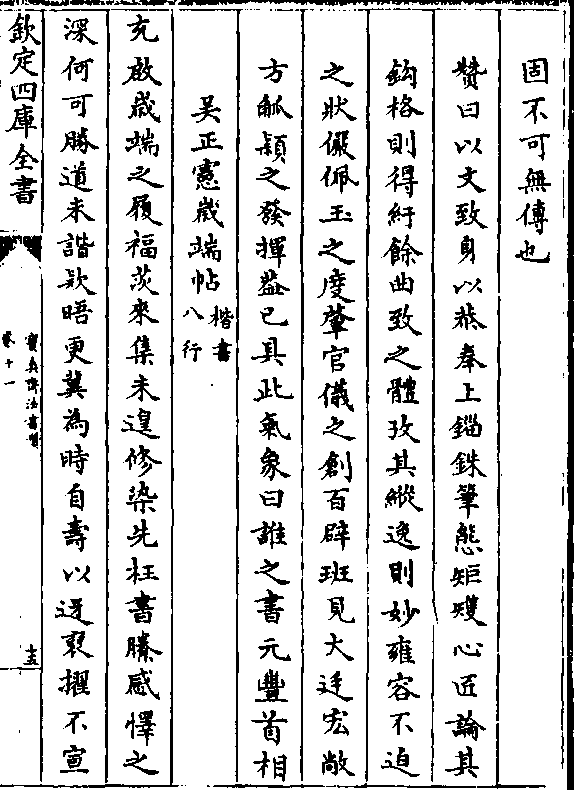 固不可無傳也
贊曰以文致身以恭奉上錙銖筆態矩矱心匠論其
鈎格則得紆餘曲致之體攷其縱逸則妙雍容不迫
之狀儼佩玉之度肇官儀之創百辟班見大廷宏敞
方觚穎之發揮益已具此氣象曰誰之書元豐首相
吳正憲歲端帖楷書八行
充啟歲端之履福茨來集未遑修染先枉書賸感懌之
深何可勝道未諧欵晤更冀為時自壽以迓褎擢不宣
欽定四庫全書
寶真齋法書贊
卷十一
十五